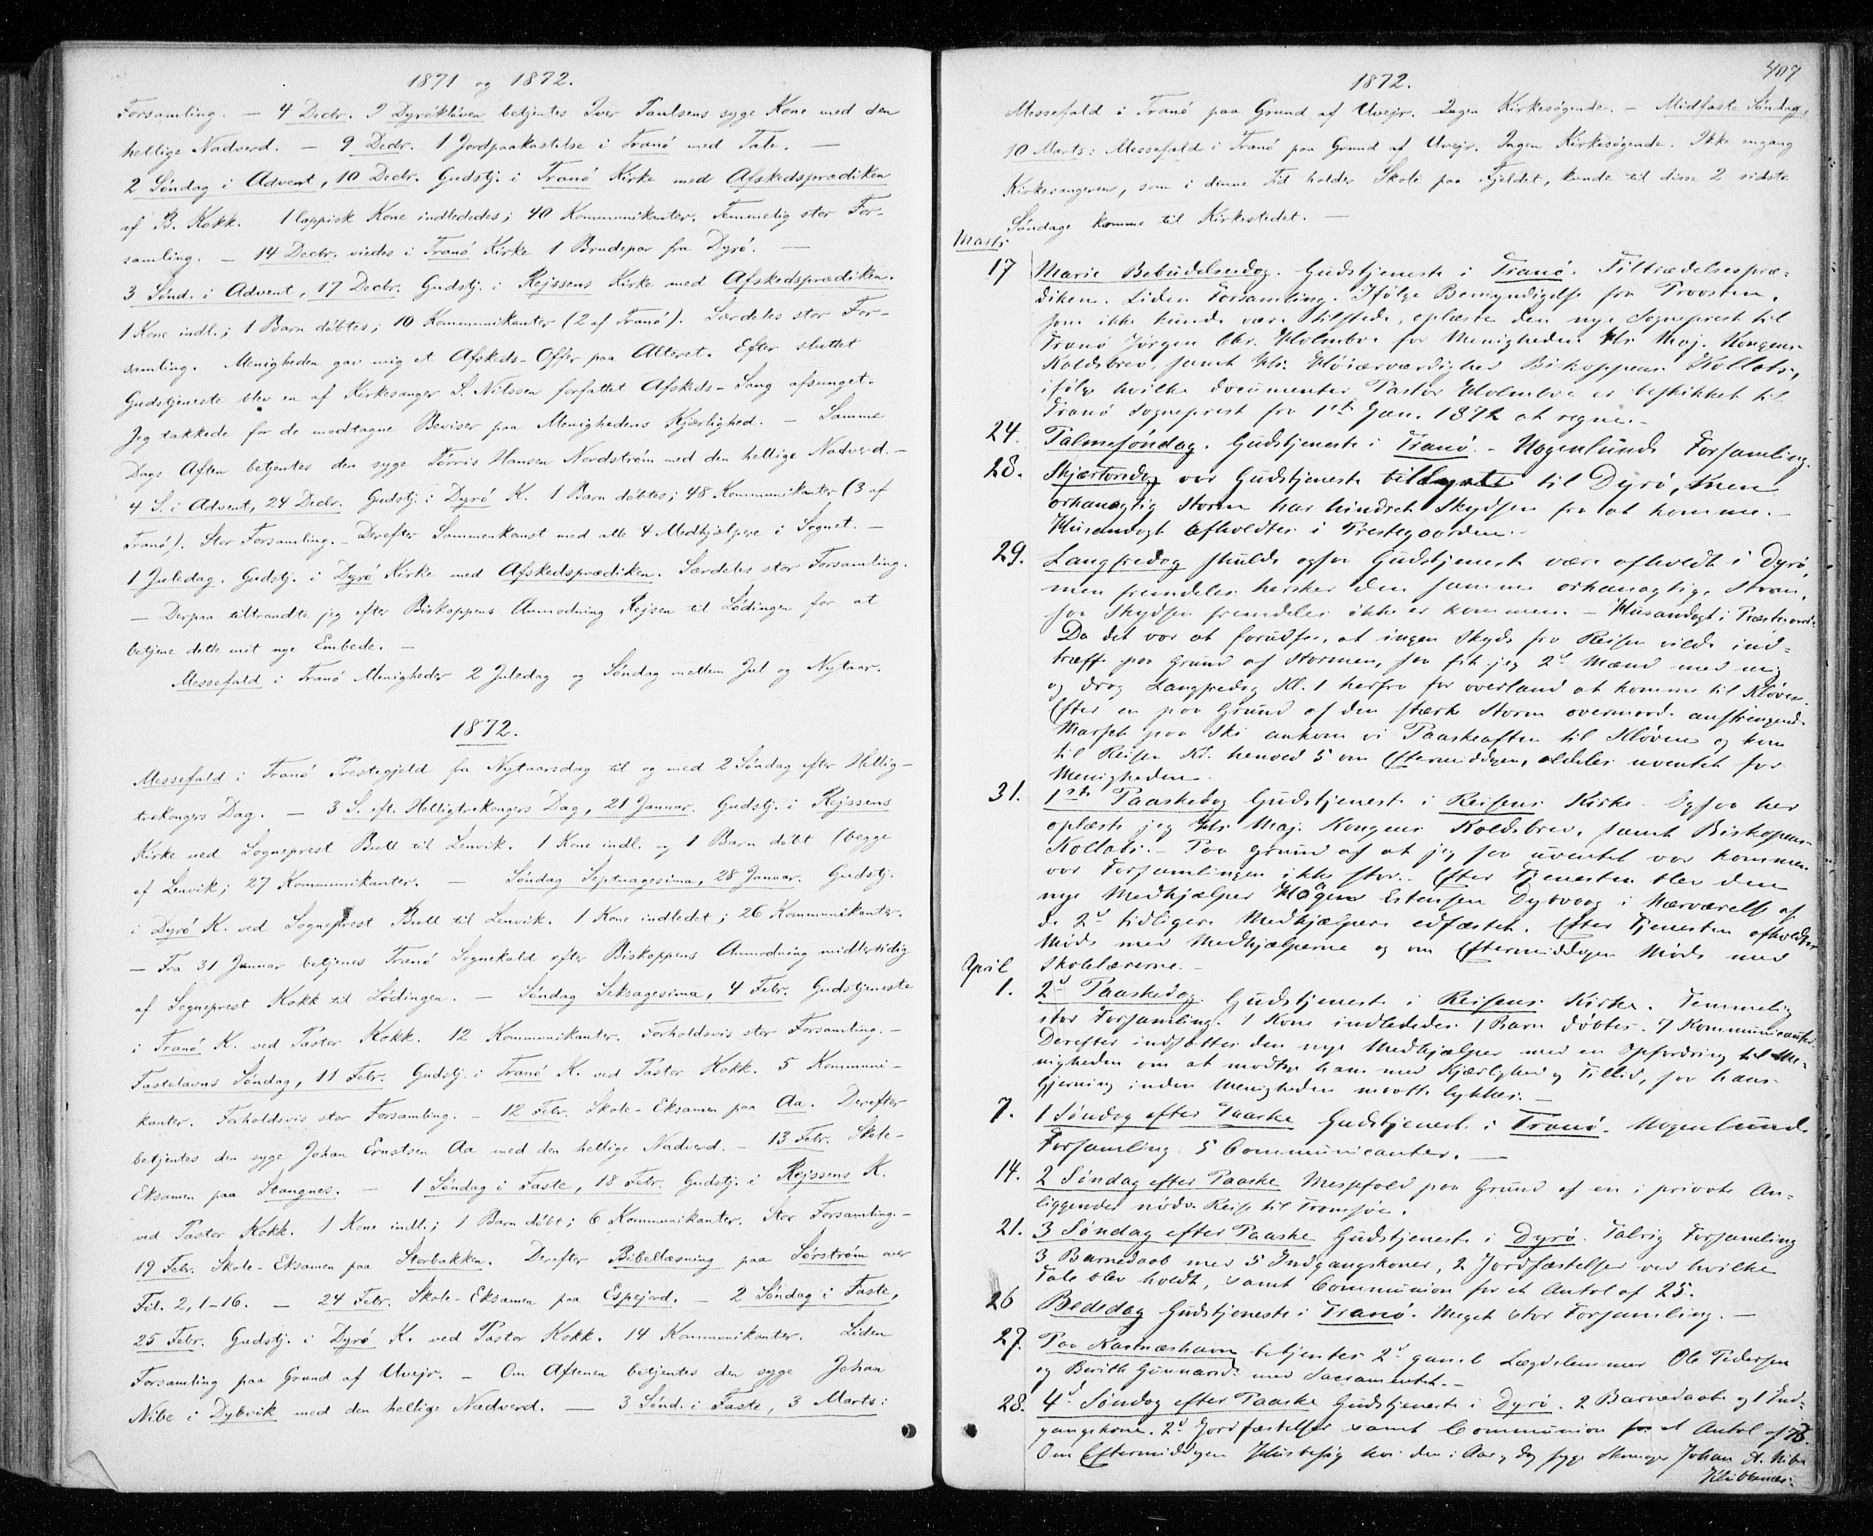 1871 og 1872.
Forsamling. — 4 Decbr. I Dyrökläven betjentes Iver Paulsens syge Kone med den
hellige Nadverd. — 9 Decbr. 1 Jordpaakastelse i Tranö med Tale. —
2 Söndag i Advent, 10 Decbr. Gudstj. i Tranö Kirke med Afskedsprædiken
af B. Kokk. 1 lappisk Kone indlededes; 40 Kommunikanter. Temmelig stor For-
samling. — 14 Decbr. viedes i Tranö Kirke 1 Brudepar fra Dyrö. —
3 Sönd. i Advent, 17 Decbr. Gudstj. i Rejssens Kirke med Afskedsprædiken.
1 Kone indl.; 1 Barn döbtes; 10 Kommunikanter (2 af Tranö). Særdeles stor For-
samling. Menigheden gav mig et Afskeds-Offer paa Alteret. Efter sluttet
Gudstjeneste blev en af Kirkesanger S. Nilssen forfattet Afskeds-Sang afsunget.
Jeg takkede for de modtagne Beviser paa Menighedens Kjærlighed. — Samme
Dags Aften betjentes den syge Törris Hansen Nordström med den hellige Nadverd. —
4 S. i Advent, 24 Decbr. Gudstj. i Dyrö K. 1 Barn döbtes; 48 Kommunikanter (3 af
Tranö). Stor Forsamling. — Derefter Sammenkomst med alle 4 Medhjælpere i Sognet. —
1 Juledag. Gudstj. i Dyrö Kirke med Afskedsprædiken. Særdeles stor Forsamling.
— Derpaa tiltraadte jeg efter Biskoppens Anmodning Rejsen til Lödingen for at
betjene dette mit nye Embede. —
Messefald i Tranö Menigheder 2 Juledag og Söndag mellem Jul og Nytaar.
1872.
Messefald i Tranö Prestegjeld fra Nytaarsdag til og med 2 Söndag efter Hellig-
trekongers Dag. — 3 S. eft. Helligtrekongers Dag, 21 Januar. Gudstj. i Rejssens
Kirke ved Sogneprest Bull til Lenvik. 1 Kone indl. og 1 Barn döbt (begge
af Lenvik; 27 Kommunikanter. — Söndag Septuagesima, 28 Januar. Gudstj.
i Dyrö K. ved Sogneprest Bull til Lenvik. 1 Kone indledet; 26 Kommunikanter.
— Fra 31 Januar betjenes Tranö Sognekald efter Biskoppens Anmodning midlertidig
af Sogneprest Kokk til Lödingen. — Söndag Seksagesima, 4 Febr. Gudstjeneste
i Tranö K. ved Pastor Kokk. 12 Kommunikanter. Forholdsvis stor Forsamling. —
Fastelavns Söndag, 11 Febr. Gudstj. i Tranö K. ved Pastor Kokk. 5 Kommuni-
kanter. Forholdsvis stor Forsamling. — 12 Febr. Skole-Eksamen paa Aa. Derefter
betjentes den syge Johan Ernstsen Aa med den hellige Nadverd. — 13 Febr. Skole-
Eksamen paa Stangnes. — 1 Söndag i Faste, 18 Febr. Gudstj. i Rejssens K.
ved Pastor Kokk. 1 Kone indl.; 1 Barn döbt; 6 Kommunikanter. Stor Forsamling. —
19 Febr. Skole-Eksamen paa Storbakken. Derefter Bibellæsning paa Sörström over
Fil. 2, 1-16. — 24 Febr. Skole-Eksamen paa Espejord. — 2 Söndag i Faste,
25 Febr. Gudstj. i Dyrö K. ved Pastor Kokk. 14 Kommunikanter. Liden
Forsamling paa Grund af Uvejr. — Om Aftenen betjentes den syge Johan
Nibe i Dybvik med den hellige Nadverd. — 3 Sönd. i Faste, 3 Marts:
1872.
407
Messefald i Tranö paa Grund af Uvejr. Ingen Kirkesögende. — Midfaste Söndag,
10 Marts: Messefald i Tranö paa Grund af Uvejr. Ingen Kirkesögende. Ikke engang
Kirkesangeren, som i denne Tid holder Skole paa Fjeldet, kunde til disse 2 sidste
Söndage komme til Kirkestedet. —
Marts
17 Marie Bebudelsesdag. Gudstjeneste i Tranö. Tiltrædelsespræ-
diken. Liden Forsamling. Ifölge Bemyndigelse fra Provsten,
som ikke kunde være tilstede, oplæste den nye Sogneprest til
Tranö Jörgen Chr. Holmboe for Menigheden Hs. Maj. Kongens
Kaldsbrev samt Hs. Höiærværdighed Biskoppens Kollats,
ifölge hvilke Documenter Pastor Holmboe er beskikket til
Tranö Sogneprest fra 1ste Jan. 1872 at regne. —
24. Palmesöndag. Gudstjeneste i Tranö. — Nogenlunde Forsamling.
28. Skjærtorsdag var Gudstjeneste tillyst til Dyrö, men
orkanagtig Storm har hindret Skydsen fra at komme. —
Husandagt afholdtes i Prestegaarden. —
29. Langfredag skulde ogsaa Gudstjeneste være afholdt i Dyrö,
men fremdeles hersker den samme orkanagtige Storm,
saa Skydsen fremdeles ikke er kommen. — Husandagt i
Da det var at forudse, at ingen Skyds fra Reisen vilde ind-
træffe paa Grund af Stormen, saa fik jeg 2de Mænd med mig
og drog Langfredag Kl. 1 herfra for overland at komme til Klöven.
Efter en paa Grund af den stærke Storm overmaade anstrengende
Marsch paa Ski ankom vi Paaskeaften til Klöven og kom
til Reisen Kl. henved 5 om Eftermiddagen, aldeles uventet for
Menigheden.
31. 1ste Paaskedag Gudstjeneste i Reisens Kirke. Ogsaa her
oplæste jeg Hs. Maj. Kongens Kaldsbrev, samt Biskopens
Kollats. — Paa Grund af at jeg saa uventet var kommen
var Forsamlingen ikke stor. Efter Tjenesten blev den
nye Medhjælper Hågen Estensen Dybvaag i Nærværelse af
de 2de tidligere Medhjælpere edfæstet. Efter Tjenesten afholdtes
Möde med Medhjælperne og om Eftermiddagen Möde med
Skolelærerne. —
April
1. 2d Paaskedag Gudstjeneste i Reisens Kirke. Temmelig
stor Forsamling. 1 Kone indlededes 1 Barn döbtes. 7 Kommunicanter.
Derefter indsattes den nye Medhjælper med en Opfordring til Me-
nigheden om at modtage ham med Kjærlighed og Tillid, saa hans
Gjerning inden Menigheden maatte lykkes. —
7. 1 Söndag efter Paaske Gudstjenest. i Tranö. Nogenlunde
Forsamling. 5 Communicanter. —
14. 2 Söndag efter Paaske Messefald paa Grund af en i private An-
liggender nödv. Reise til Tromsöe.
21. 3 Söndag efter Paaske Gudstjeneste i Dyrö. Talrig Forsamling
3 Barnedaab med 5 Indgangskoner, 2 Jordfæstelser ved hvilke
Tale blev holdt, samt Communion for et Antal af 25.
26 Bededag Gudstjeneste i Tranö. Meget stor Forsamling. —
27. Paa Kastnæshavn betjentes 2de gamle Lægdslemmer Ole Pedersen
og Berith Gunnarsd. med Sacramentet. —
28. 4d Söndag efter Paaske Gudstjeneste i Dyrö. 2 Barnedaab og 1 Ind-
gangskone. 2de Jordfæstelser samt Communion for et Antal af
Om Eftermiddagen Husbesög hos den i Aar og Dag syge Johan A. Nibe